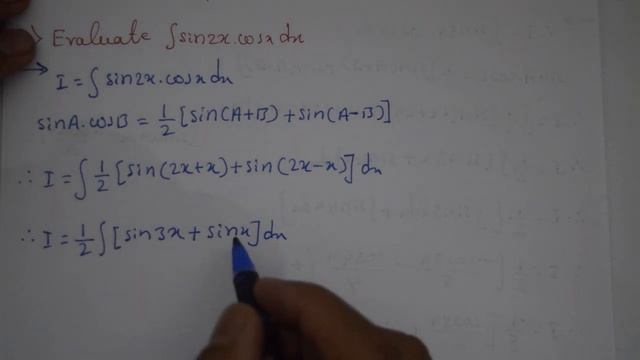 > Evaluate ∫sin2x.cosx dx
→ I = ∫sin2x.cosx dx
sinA.cosB = 1/2 [sin(A+B) + sin(A-B)]
∴ I = ∫ 1/2 [sin(2x+x) + sin(2x-x)] dx
∴ I = 1/2 ∫ [sin3x + sinx] dx